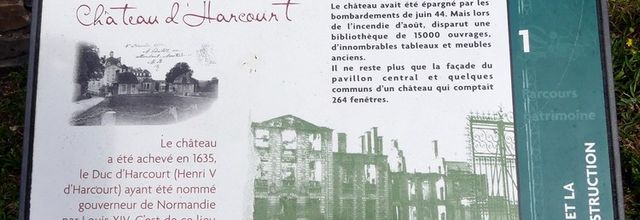 Château d'Harcourt
Le château
a été achevé en 1635,
le Duc d'Harcourt (Henri V
d'Harcourt) ayant été nommé
gouverneur de Normandie
par Louis XIV. C'est de ce lieu
Le château avait été épargné par les
bombardements de juin 44. Mais lors
de l'incendie d'août, disparut une
bibliothèque de 15000 ouvrages,
d'innombrables tableaux et meubles
anciens.
Il ne reste plus que la façade du
pavillon central et quelques
communs d'un château qui comptait
264 fenêtres.
1
Parcours
patrimoine
ET LA
STRUCTION